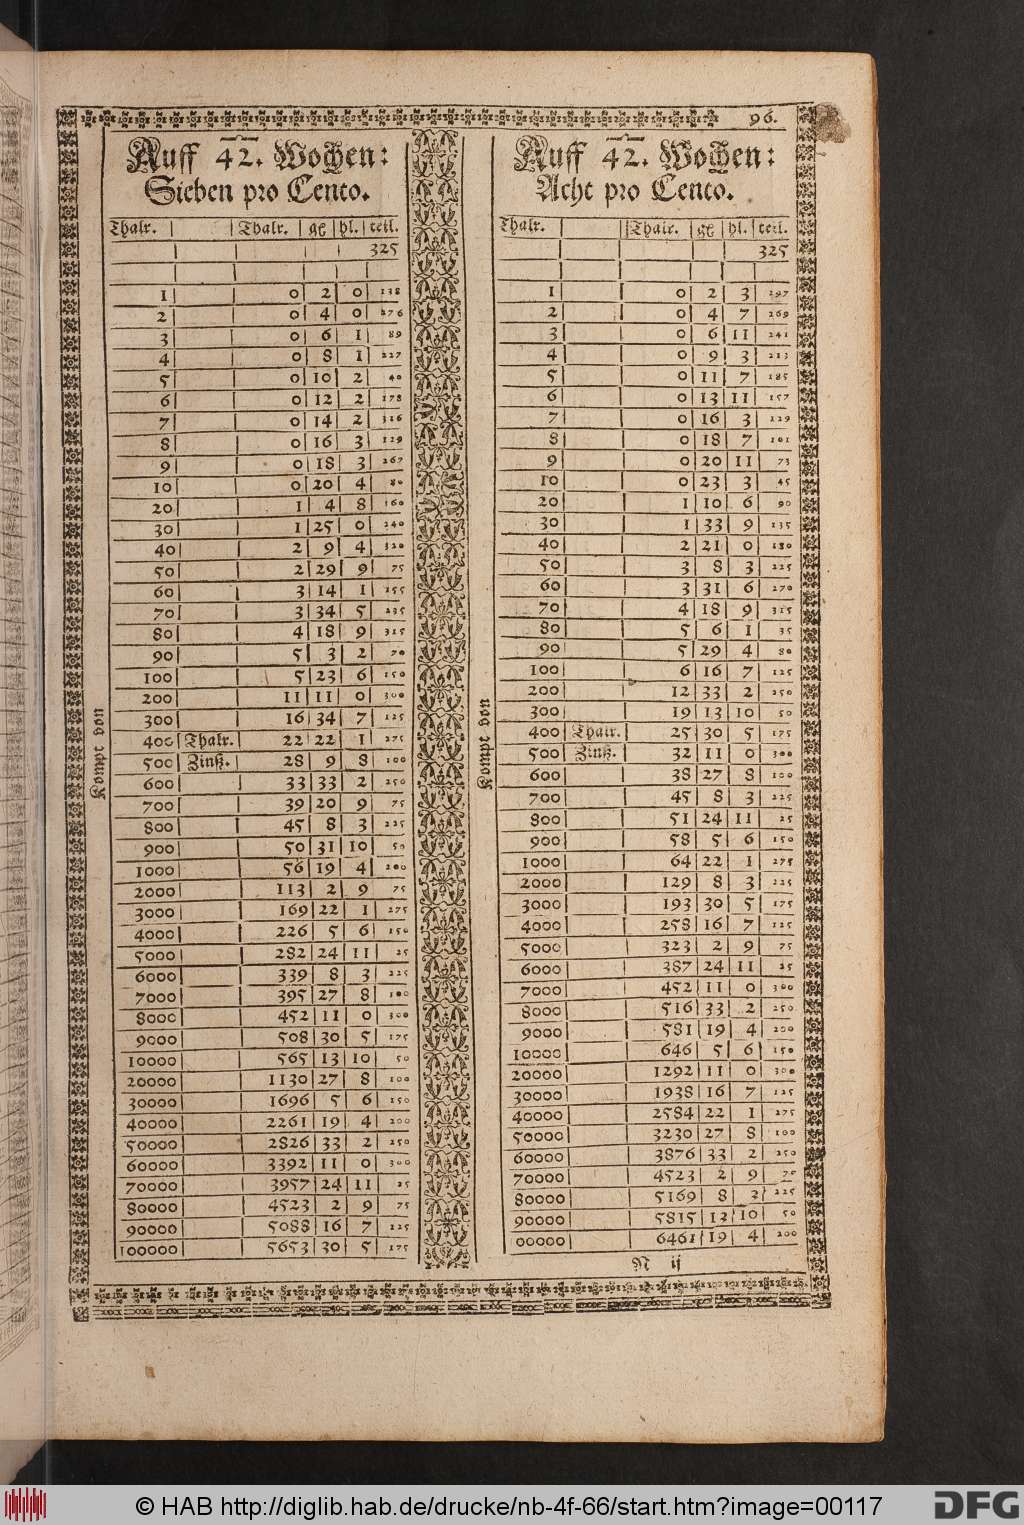 96.
Auff 42. Wochen:
Sieben pro Cento.
Thalr. Thalr. gl hl. teil.
325
1 0 2 0 138
2 0 4 0 276
3 0 6 1 89
4 0 8 1 227
5 0 10 2 40
6 0 12 2 178
7 0 14 2 316
8 0 16 3 129
9 0 18 3 267
10 0 20 4 80
20 1 4 8 160
30 1 25 0 240
40 2 9 4 320
50 2 29 9 75
60 3 14 1 155
70 3 34 5 235
80 4 18 9 315
90 5 3 2 70
100 5 23 6 150
200 11 11 0 300
300 16 34 7 125
400 Thalr. 22 22 1 275
500 Zinß. 28 9 8 100
600 33 33 2 250
700 39 20 9 75
800 45 8 3 225
900 50 31 10 50
1000 56 19 4 200
2000 113 2 9 75
3000 169 22 1 275
4000 226 5 6 150
5000 282 24 11 25
6000 339 8 3 225
7000 395 27 8 100
8000 452 11 0 300
9000 508 30 5 175
10000 565 13 10 50
20000 1130 27 8 100
30000 1696 5 6 150
40000 2261 19 4 200
50000 2826 33 2 250
60000 3392 11 0 300
70000 3957 24 11 25
80000 4523 2 9 75
90000 5088 16 7 125
100000 5653 30 5 175
Kompt von
Auff 42. Wochen:
Acht pro Cento.
Thalr. Thalr. gl hl. teil.
325
1 0 2 3 297
2 0 4 7 269
3 0 6 11 241
4 0 9 3 213
5 0 11 7 185
6 0 13 11 157
7 0 16 3 129
8 0 18 7 101
9 0 20 11 73
10 0 23 3 45
20 1 10 6 90
30 1 33 9 135
40 2 21 0 180
50 3 8 3 225
60 3 31 6 270
70 4 18 9 315
80 5 6 1 35
90 5 29 4 80
100 6 16 7 125
200 12 33 2 250
300 19 13 10 50
400 Thalr. 25 30 5 175
500 Zinß. 32 11 0 300
600 38 27 8 100
700 45 8 3 225
800 51 24 11 25
900 58 5 6 150
1000 64 22 1 275
2000 129 8 3 225
3000 193 30 5 175
4000 258 16 7 125
5000 323 2 9 75
6000 387 24 11 25
7000 452 11 0 300
8000 516 33 2 250
9000 581 19 4 200
10000 646 5 6 150
20000 1292 11 0 300
30000 1938 16 7 125
40000 2584 22 1 275
50000 3230 27 8 100
60000 3876 33 2 250
70000 4523 2 9 75
80000 5169 8 3 225
90000 5815 13 10 50
00000 6461 19 4 200
Kompt von
N ij
© HAB http://diglib.hab.de/drucke/nb-4f-66/start.htm?image=00117
DFG